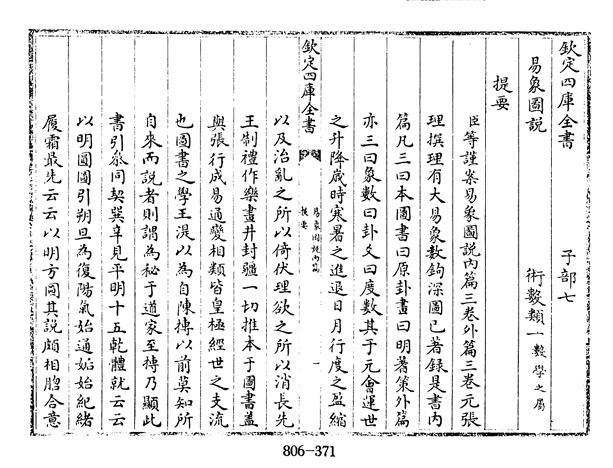 欽定四庫全書　子部七
易象圖說　術數類一數學之屬
提要
臣等謹案易象圖說內篇三卷外篇三卷元張
理撰理有大易象數鉤深圖已著錄是書內
篇凡三曰本圖書曰原卦畫曰明蓍策外篇
亦三曰象數曰卦爻曰度數其于元會運世
之升降歲時寒暑之進退日月行度之盈縮
欽定四庫全書
易象圖說內篇
提要
一
以及治亂之所以倚伏理欲之所以消長先
王制禮作樂畫井封疆一切推本于圖書蓋
與張行成易通變相類皆皇極經世之支流
也圖書之學王湜以為自陳摶以前莫知所
自來而說者則謂為秘于道家至摶乃顯此
書引參同契巽辛見平明十五乾體就云云
以明圓圖引朔旦為復陽氣始通姤始紀緒
履霜最先云云以明方圖其說頗相脗合意
806-371